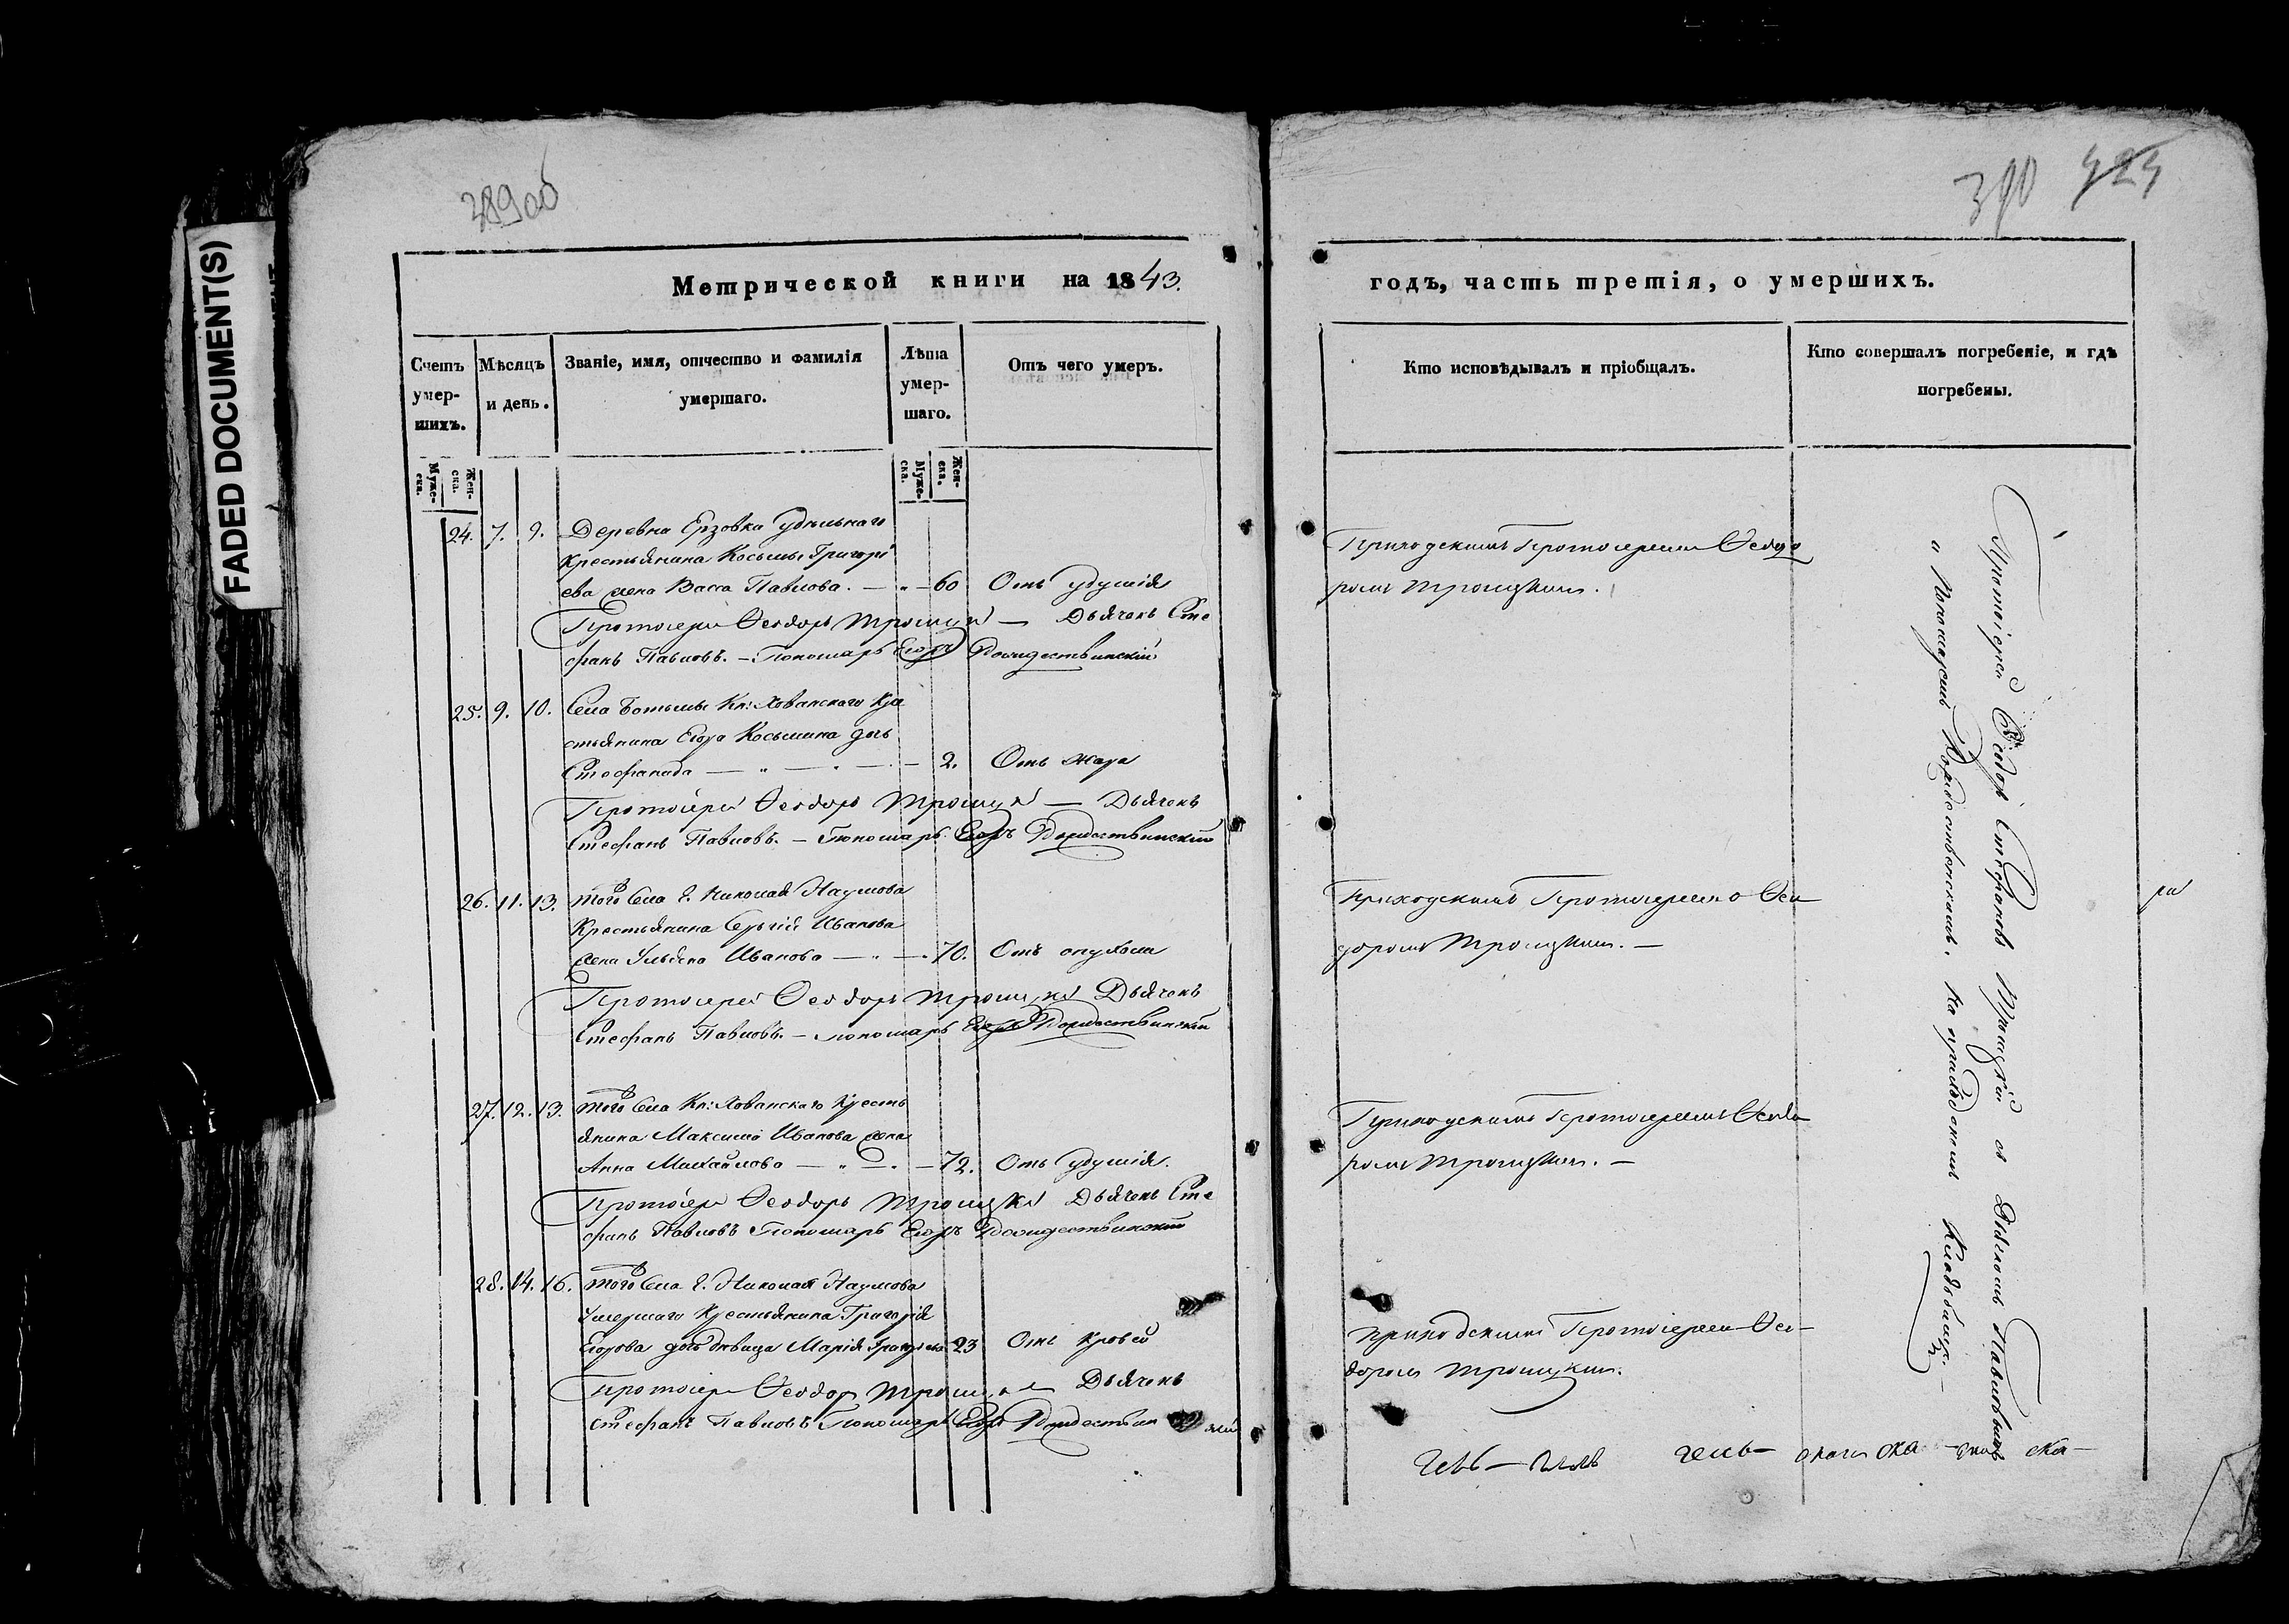 FADED DOCUMENT(S)
389об
390 424
Метрической книги на 1843.
годъ, часть третія, о умершихъ.
Счетъ умершихъ.
Мѣсяцъ и день.
Званіе, имя, отчество и фамилія умершаго.
Лѣта умершаго.
Отъ чего умеръ.
Кто исповѣдывалъ и пріобщалъ.
Кто совершалъ погребеніе, и гдѣ погребены.
Муже-ска.
Жен-ска.
Муже-ска.
Жен-ска.
24. 7. 9. Деревна Ерзовка удѣльнаго
крестьянина Косьмы Григорі
ева жена Васса Павлова. — 60 Отъ удушія
Протоіерей Ѳеодоръ Троицкій — Дьячекъ Сте
фанъ Павловъ. — Пономарь Егоръ Рождественскій
Приходскимъ Протоіереемъ Ѳеодо
ромъ Троицкимъ.
25. 9. 10. Села Ботьмы Кн: Хованскаго кре
стьянина Егора Косьмина дочь
Стефанида — 2. Отъ жара
Протоіерей Ѳеодоръ Троицкій — Дьячекъ
Стефанъ Павловъ. — Пономарь Егоръ Рождественскій
26. 11. 13. Того села г. Николая Наумова
Крестьянина Сергія Иванова
жена Ульяна Иванова — 70. Отъ опухоли
Протоіерей Ѳеодоръ Троицкій Дьячекъ
Стефанъ Павловъ. — Пономарь Егоръ Рождественскій
Приходскимъ Протоіереемъ Ѳео
доромъ Троицкимъ. —
27. 12. 13. Того села Кн: Хованскаго Кресть
янина Максима Иванова жена
Анна Михайлова — 72. Отъ удушія.
Протоіерей Ѳеодоръ Троицкій Дьячекъ Сте
фанъ Павловъ Пономарь Егоръ Рождественскій
Приходскимъ Протоіереемъ Ѳеодо
ромъ Троицкимъ. —
28. 14. 16. Того села г. Николая Наумова
умершаго Крестьянина Григорія
Егорова дочь дѣвица Марія Григорьева 23 Отъ кровей
Протоіерей Ѳеодоръ Троицкій Дьячекъ
Стефанъ Павловъ Пономарь Егоръ Рождествен скій
Приходскимъ Протоіереемъ Ѳео-
доромъ Троицкимъ.
Протоіерей Ѳеодоръ Стефановъ Троицкій съ Дьячкомъ Павловымъ
и Пономаремъ Рождественскимъ, на приходскомъ Кладбищѣ. —